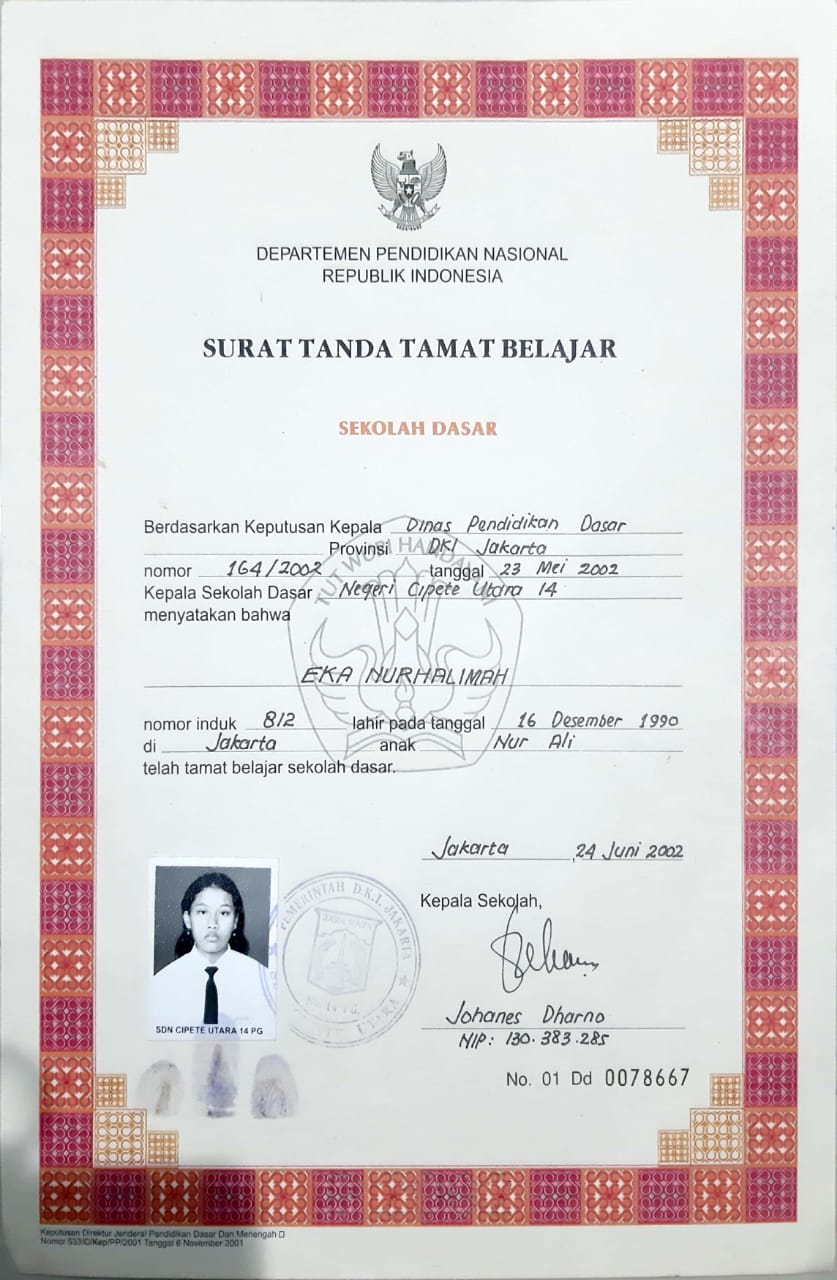 DEPARTEMEN PENDIDIKAN NASIONAL
REPUBLIK INDONESIA
SURAT TANDA TAMAT BELAJAR
SEKOLAH DASAR
Berdasarkan Keputusan Kepala Dinas Pendidikan Dasar
Provinsi DKI Jakarta
nomor 164/2002 tanggal 23 Mei 2002
Kepala Sekolah Dasar Negeri Cipete Utara 14
menyatakan bahwa
TUT WURI HANDAYANI
EKA NURHALIMAH
nomor induk 812 lahir pada tanggal 16 Desember 1990
di Jakarta anak Nur Ali
telah tamat belajar sekolah dasar.
Jakarta, 24 Juni 2002
Kepala Sekolah,
PEMERINTAH D.K.I. JAKARTA
UTARA
Johanes Dharno
NIP: 130.383.285
SDN CIPETE UTARA 14 PG
No. 01 Dd 0078667
Keputusan Direktur Jenderal Pendidikan Dasar Dan Menengah
Nomor 533/C/Kep/PP/2001 Tanggal 6 November 2001